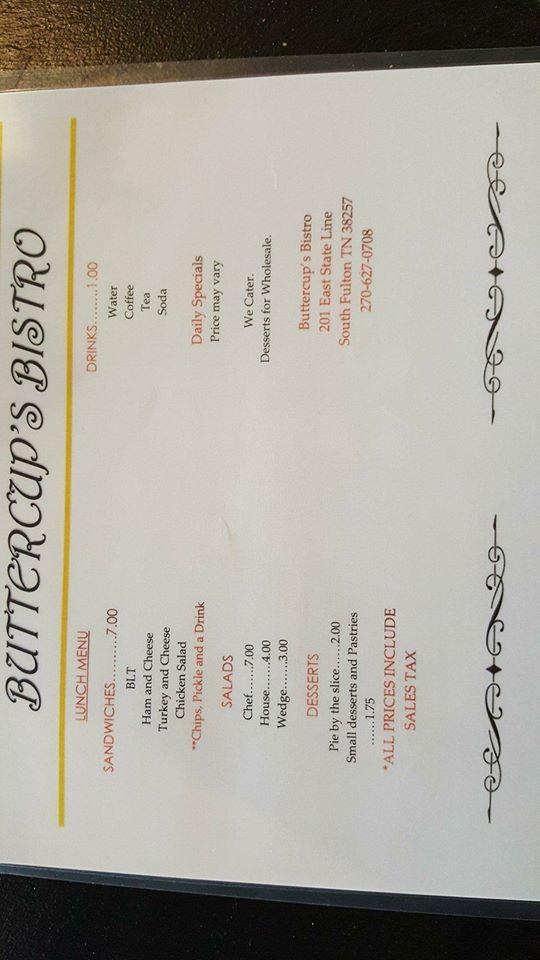 BUTTERCUP'S BISTRO
LUNCH MENU
SANDWICHES...........7.00
BLT
Ham and Cheese
Turkey and Cheese
Chicken Salad
**Chips, Pickle and a Drink
SALADS
Chef.....7.00
House.......4.00
Wedge.......3.00
DESSERTS
Pie by the slice......2.00
Small desserts and Pastries
......1.75
*ALL PRICES INCLUDE
SALES TAX
DRINKS.........1.00
Water
Coffee
Tea
Soda
Daily Specials
Price may vary
We Cater.
Desserts for Wholesale.
Buttercup's Bistro
201 East State Line
South Fulton TN 38257
270-627-0708